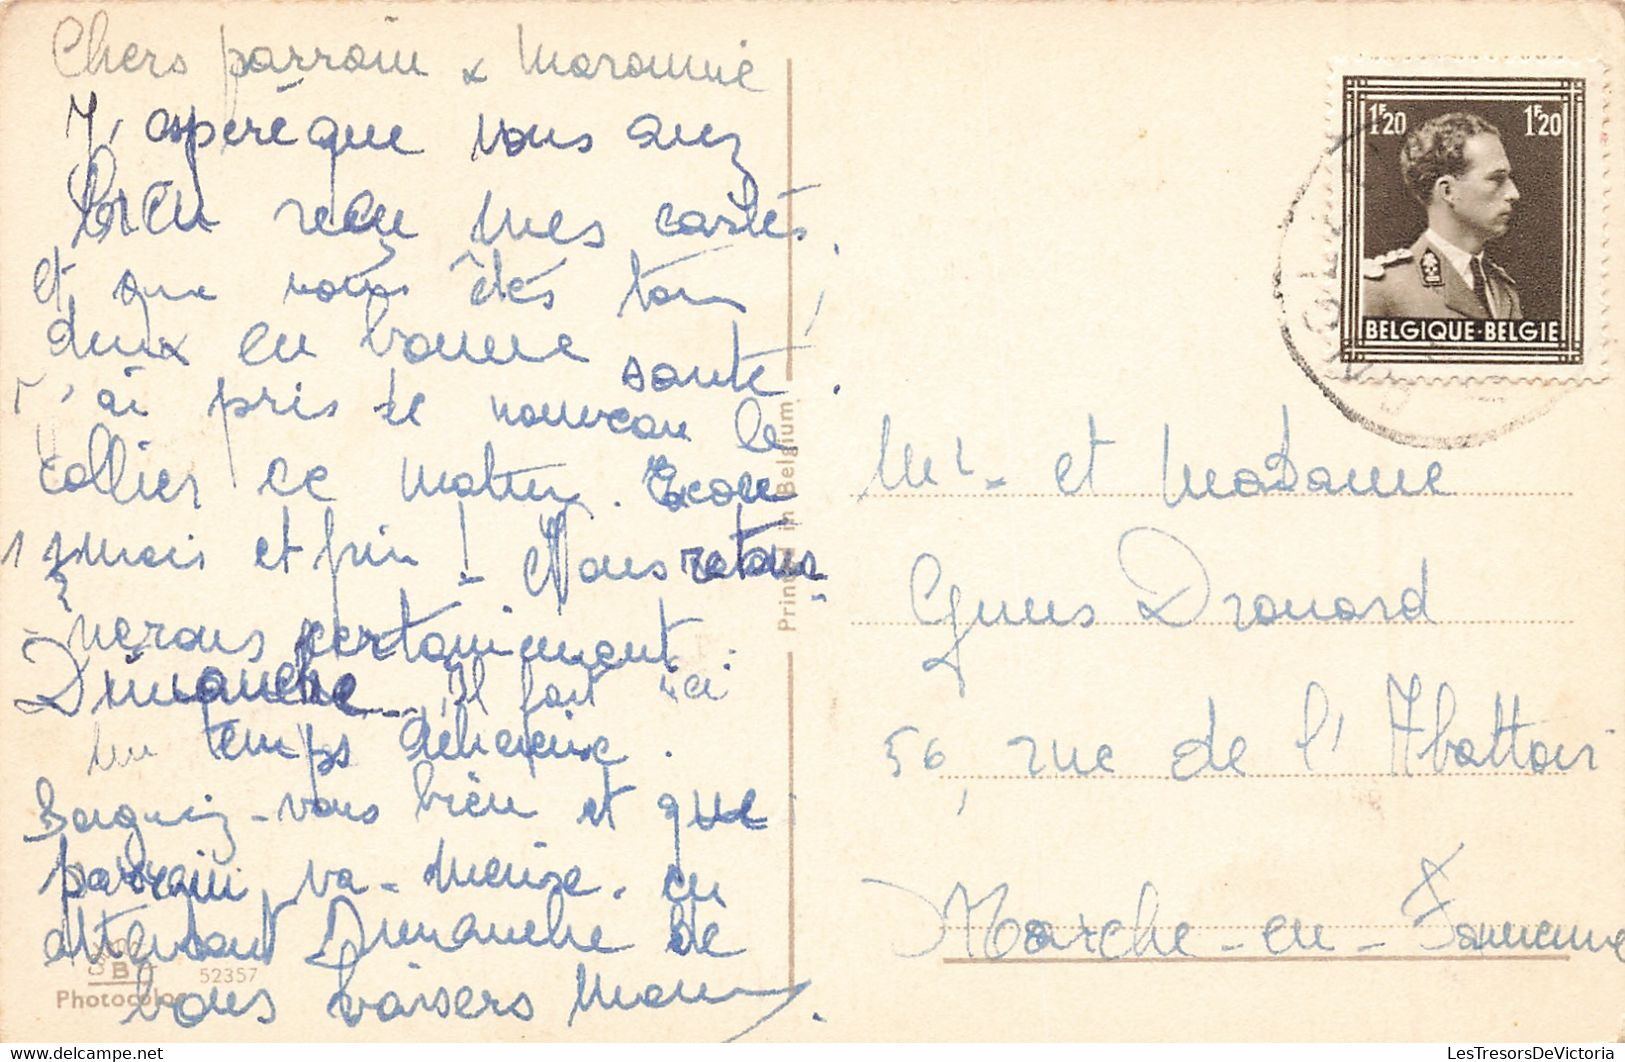 Chers parrain & Maramie
J'espère que vous avez
bien reçu mes cartes.
et que vous êtes tous
deux en bonne santé.
J'ai pris de nouveau le
collier ce matin. Encore
1 mois et fin ! Nous retour-
nerons certainement
Dimanche. Il fait ici
un temps délicieux.
Soignez-vous bien et que
parrain va mieux. en
attendant Dimanche de
bons baisers
B
52357
Photocolor
Printed in Belgium
1F20 1F20
BELGIQUE-BELGIE
Mr et Madame
Drouard
56, rue de l'Abattoir
Marche-en-Famenne
LesTresorsDeVictoria
delcampe.net